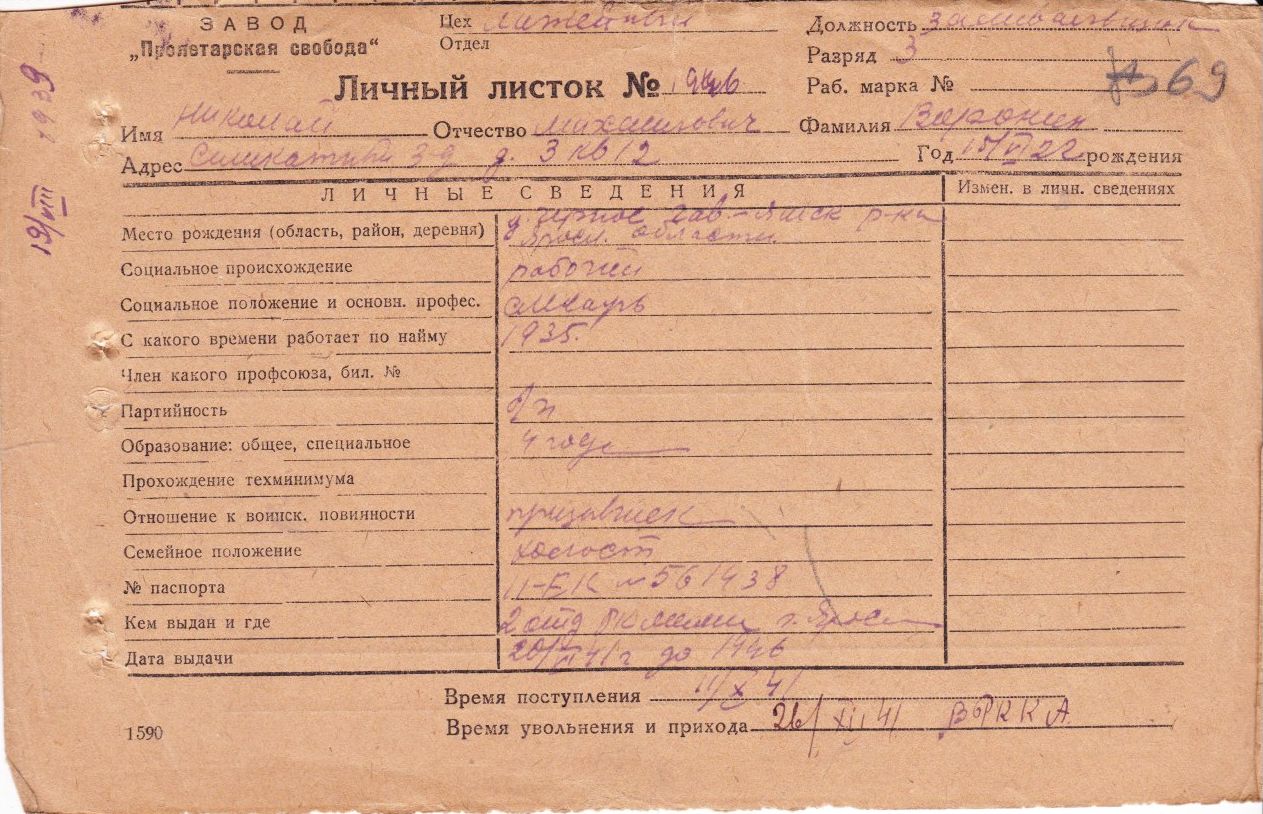 ЗАВОД
„Пролетарская свобода“
Цех литейный
Отдел
Должность заливальщик
Разряд 3
Личный листок №
Раб. марка № 69
Имя Николай Отчество Михайлович Фамилия Воронин
Адрес Силикатный д. 3 кв 12 Год 15/VI 22 рождения
19/VIII 1939
ЛИЧНЫЕ СВЕДЕНИЯ
Измен. в личн. сведениях
Место рождения (область, район, деревня) Гав-Ямск р-на
Яросл. области
Социальное происхождение рабочий
Социальное положение и основн. професс. слесарь
С какого времени работает по найму 1935.
Член какого профсоюза, бил. №
Партийность б/п
Образование: общее, специальное 4 года
Прохождение техминимума
Отношение к воинск. повинности призывник
Семейное положение холост
№ паспорта II-ЕК № 561438
Кем выдан и где 2 отд РК милиц г. Яросл
Дата выдачи 20/VI 41 г до 1946
Время поступления 11/X 41
1590
Время увольнения и прихода 26/XII 41 В РККА